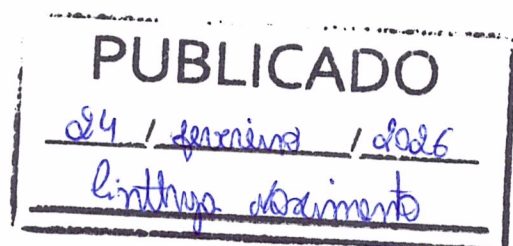 PUBLICADO
24 / fevereiro / 2026
Cinthya Nascimento